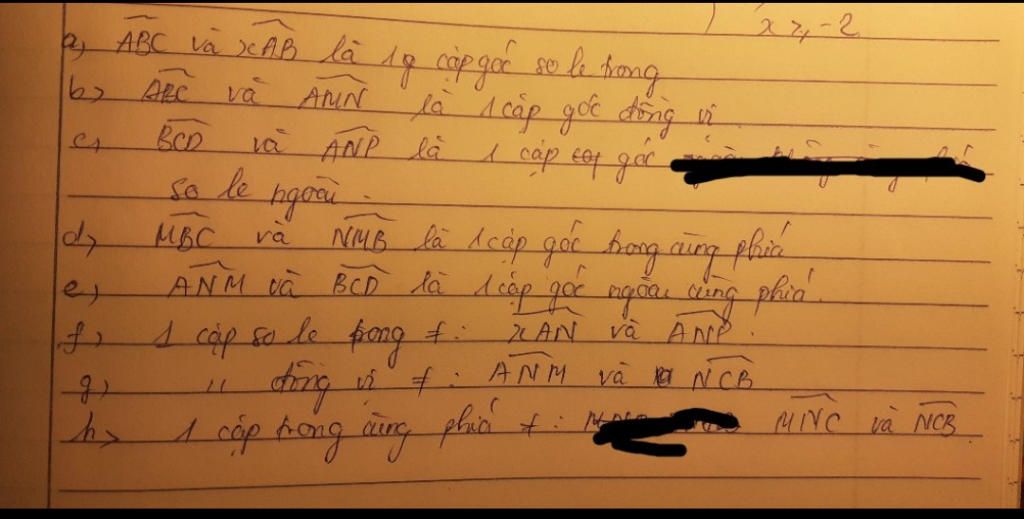 x ≥ -2
a, ABC và xAB là 1 cặp góc so le trong
b> ABC và AMN là 1 cặp góc đồng vị
c, BCD và ANP là 1 cặp góc
so le ngoài.
d, MBC và NMB là 1 cặp góc trong cùng phía
e, ANM và BCD là 1 cặp góc ngoài cùng phía.
f, 1 cặp so le trong ≠ : xAN và ANP.
g, " đồng vị ≠ : ANM và NCB
h> 1 cặp trong cùng phía ≠ : MNC và NCB.